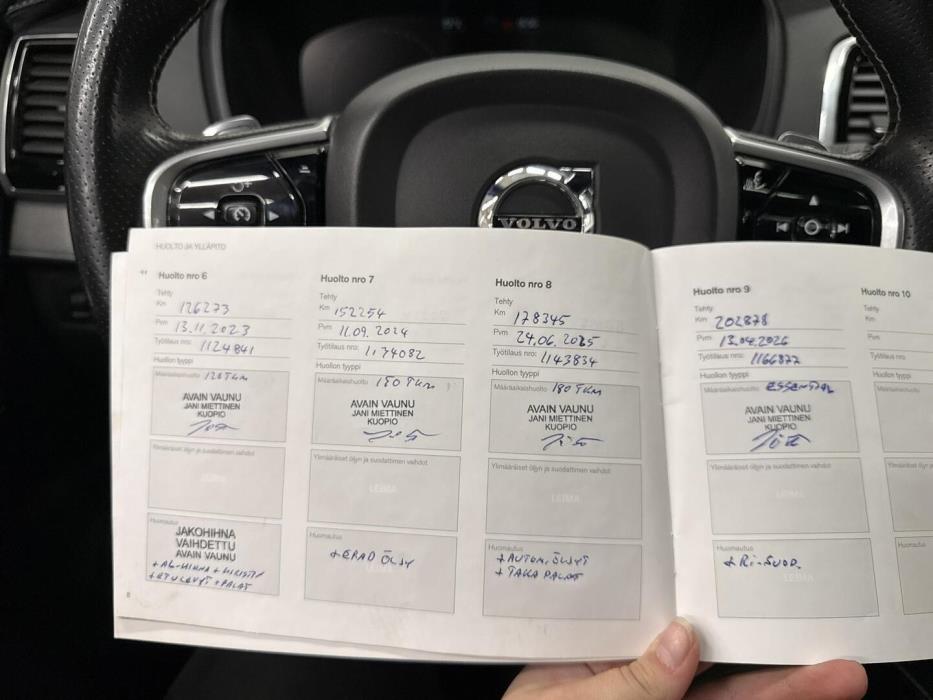 VOLVO
HUOLTO JA YLLÄPITO
Huolto nro 6
Tehty
Km 126273
Pvm 13.11.2023
Työtilaus nro: 1124841
Huollon tyyppi
120 TKM
AVAIN VAUNU
JANI MIETTINEN
KUOPIO
Ylimääräiset öljyn ja suodattimen vaihdot
LEIMA
Huomautus
JAKOHIHNA
VAIHDETTU
AVAIN VAUNU
+ ETULEVYT + PALAT
8
Huolto nro 7
Tehty
Km 152254
Pvm 11.09.2024
Työtilaus nro: 1134082
Huollon tyyppi
Määräaikaishuolto 150 TKM
AVAIN VAUNU
JANI MIETTINEN
KUOPIO
Ylimääräiset öljyn ja suodattimen vaihdot
LEIMA
Huomautus
+ ERAD ÖLJY
Huolto nro 8
Tehty
Km 178345
Pvm 24.06.2025
Työtilaus nro: 1143834
Huollon tyyppi
Määräaikaishuolto 180 TKM
AVAIN VAUNU
JANI MIETTINEN
KUOPIO
Ylimääräiset öljyn ja suodattimen vaihdot
LEIMA
Huomautus
+ AUTOM. ÖLJYT
+ TAKA PALAT
Huolto nro 9
Tehty
Km 202878
Pvm 13.04.2026
Työtilaus nro: 1166877
Huollon tyyppi
Määräaikaishuolto ESSENTIAL
AVAIN VAUNU
JANI MIETTINEN
KUOPIO
Ylimääräiset öljyn ja suodattimen vaihdot
LEIMA
Huomautus
+ RI-SUOD.
LEIMA
Huolto nro 10
Tehty
Km
Pvm
Huomautus